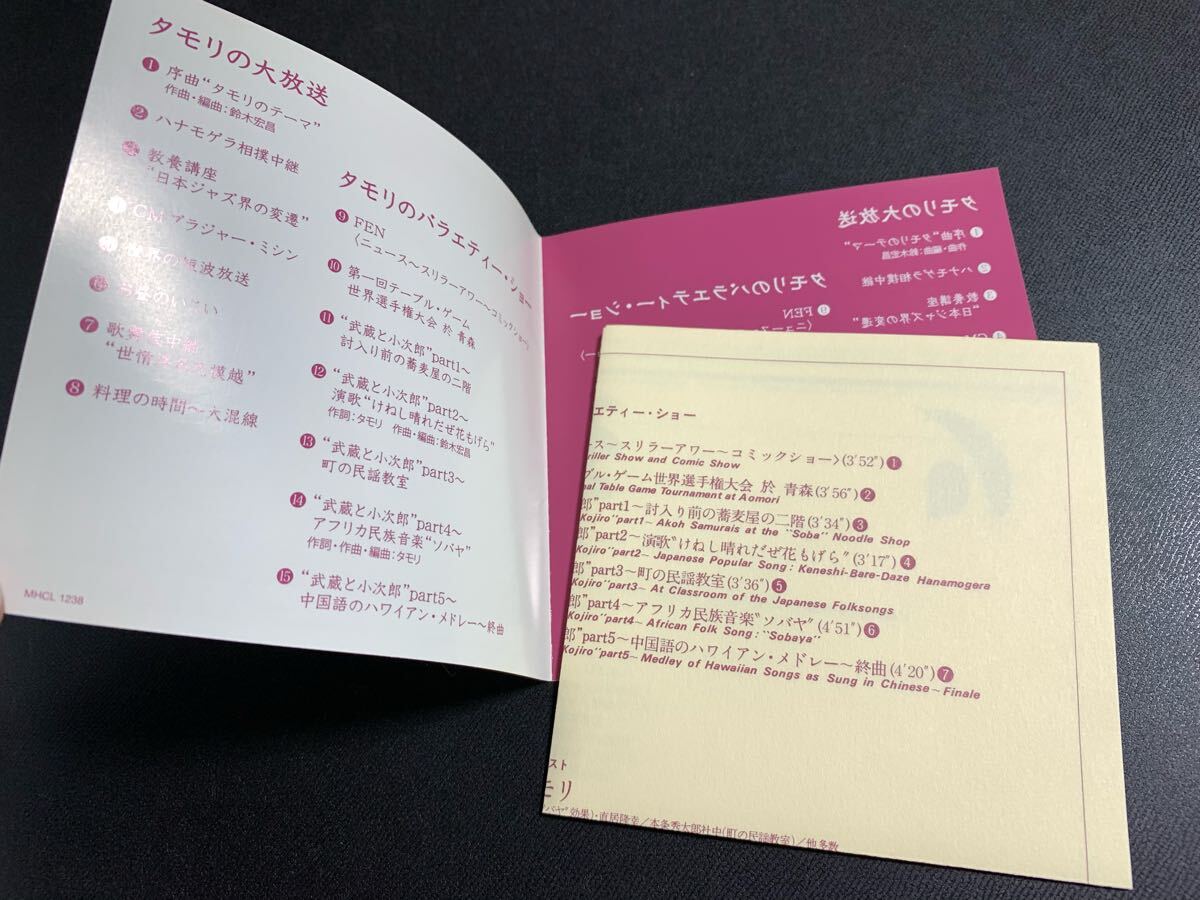 タモリの大放送
❶ 序曲“タモリのテーマ”
作曲・編曲:鈴木宏昌
❷ ハナモゲラ相撲中継
教養講座
“日本ジャズ界の変遷”
CM ブラジャー・ミシン
短波放送
❼ 歌舞伎中継
“世情
❽ 料理の時間〜大混線
MHCL 1238
タモリのバラエティー・ショー
❾ FEN
〈ニュース〜スリラーアワー〜コミックショー〉
❿ 第一回テーブル・ゲーム
世界選手権大会 於 青森
⓫ “武蔵と小次郎”part1〜
討入り前の蕎麦屋の二階
⓬ “武蔵と小次郎”part2〜
演歌“けねし晴れだぜ花もげら”
作詞:タモリ 作曲・編曲:鈴木宏昌
⓭ “武蔵と小次郎”part3〜
町の民謡教室
⓮ “武蔵と小次郎”part4〜
アフリカ民族音楽“ソバヤ”
作詞・作曲・編曲:タモリ
⓯ “武蔵と小次郎”part5〜
中国語のハワイアン・メドレー〜終曲
タモリの大放送
❶ 序曲“タモリのテーマ”
作曲・編曲:鈴木宏昌
❷ ハナモゲラ相撲中継
❸ 教養講座
“日本ジャズ界の変遷”
タモリのバラエティー・ショー
❾ FEN
〈ニュース
エティー・ショー
ース〜スリラーアワー〜コミックショー〉(3′52″)❶
riller Show and Comic Show
ブル・ゲーム世界選手権大会 於 青森(3′56″)❷
nal Table Game Tournament at Aomori
郎”part1〜討入り前の蕎麦屋の二階(3′34″)❸
Kojiro”part1〜 Akoh Samurais at the “Soba” Noodle Shop
郎”part2〜演歌“けねし晴れだぜ花もげら”(3′17″)❹
Kojiro”part2〜 Japanese Popular Song: Keneshi-Bare-Daze Hanamogera
郎”part3〜町の民謡教室(3′36″)❺
Kojiro”part3〜 At Classroom of the Japanese Folksongs
郎”part4〜アフリカ民族音楽“ソバヤ”(4′51″)❻
Kojiro”part4〜 African Folk Song: “Sobaya”
郎”part5〜中国語のハワイアン・メドレー〜終曲(4′20″)❼
Kojiro”part5〜 Medley of Hawaiian Songs as Sung in Chinese〜Finale
スト
モリ
バヤ”効果)・直居隆幸/本条秀太郎社中(町の民謡教室)/他多数